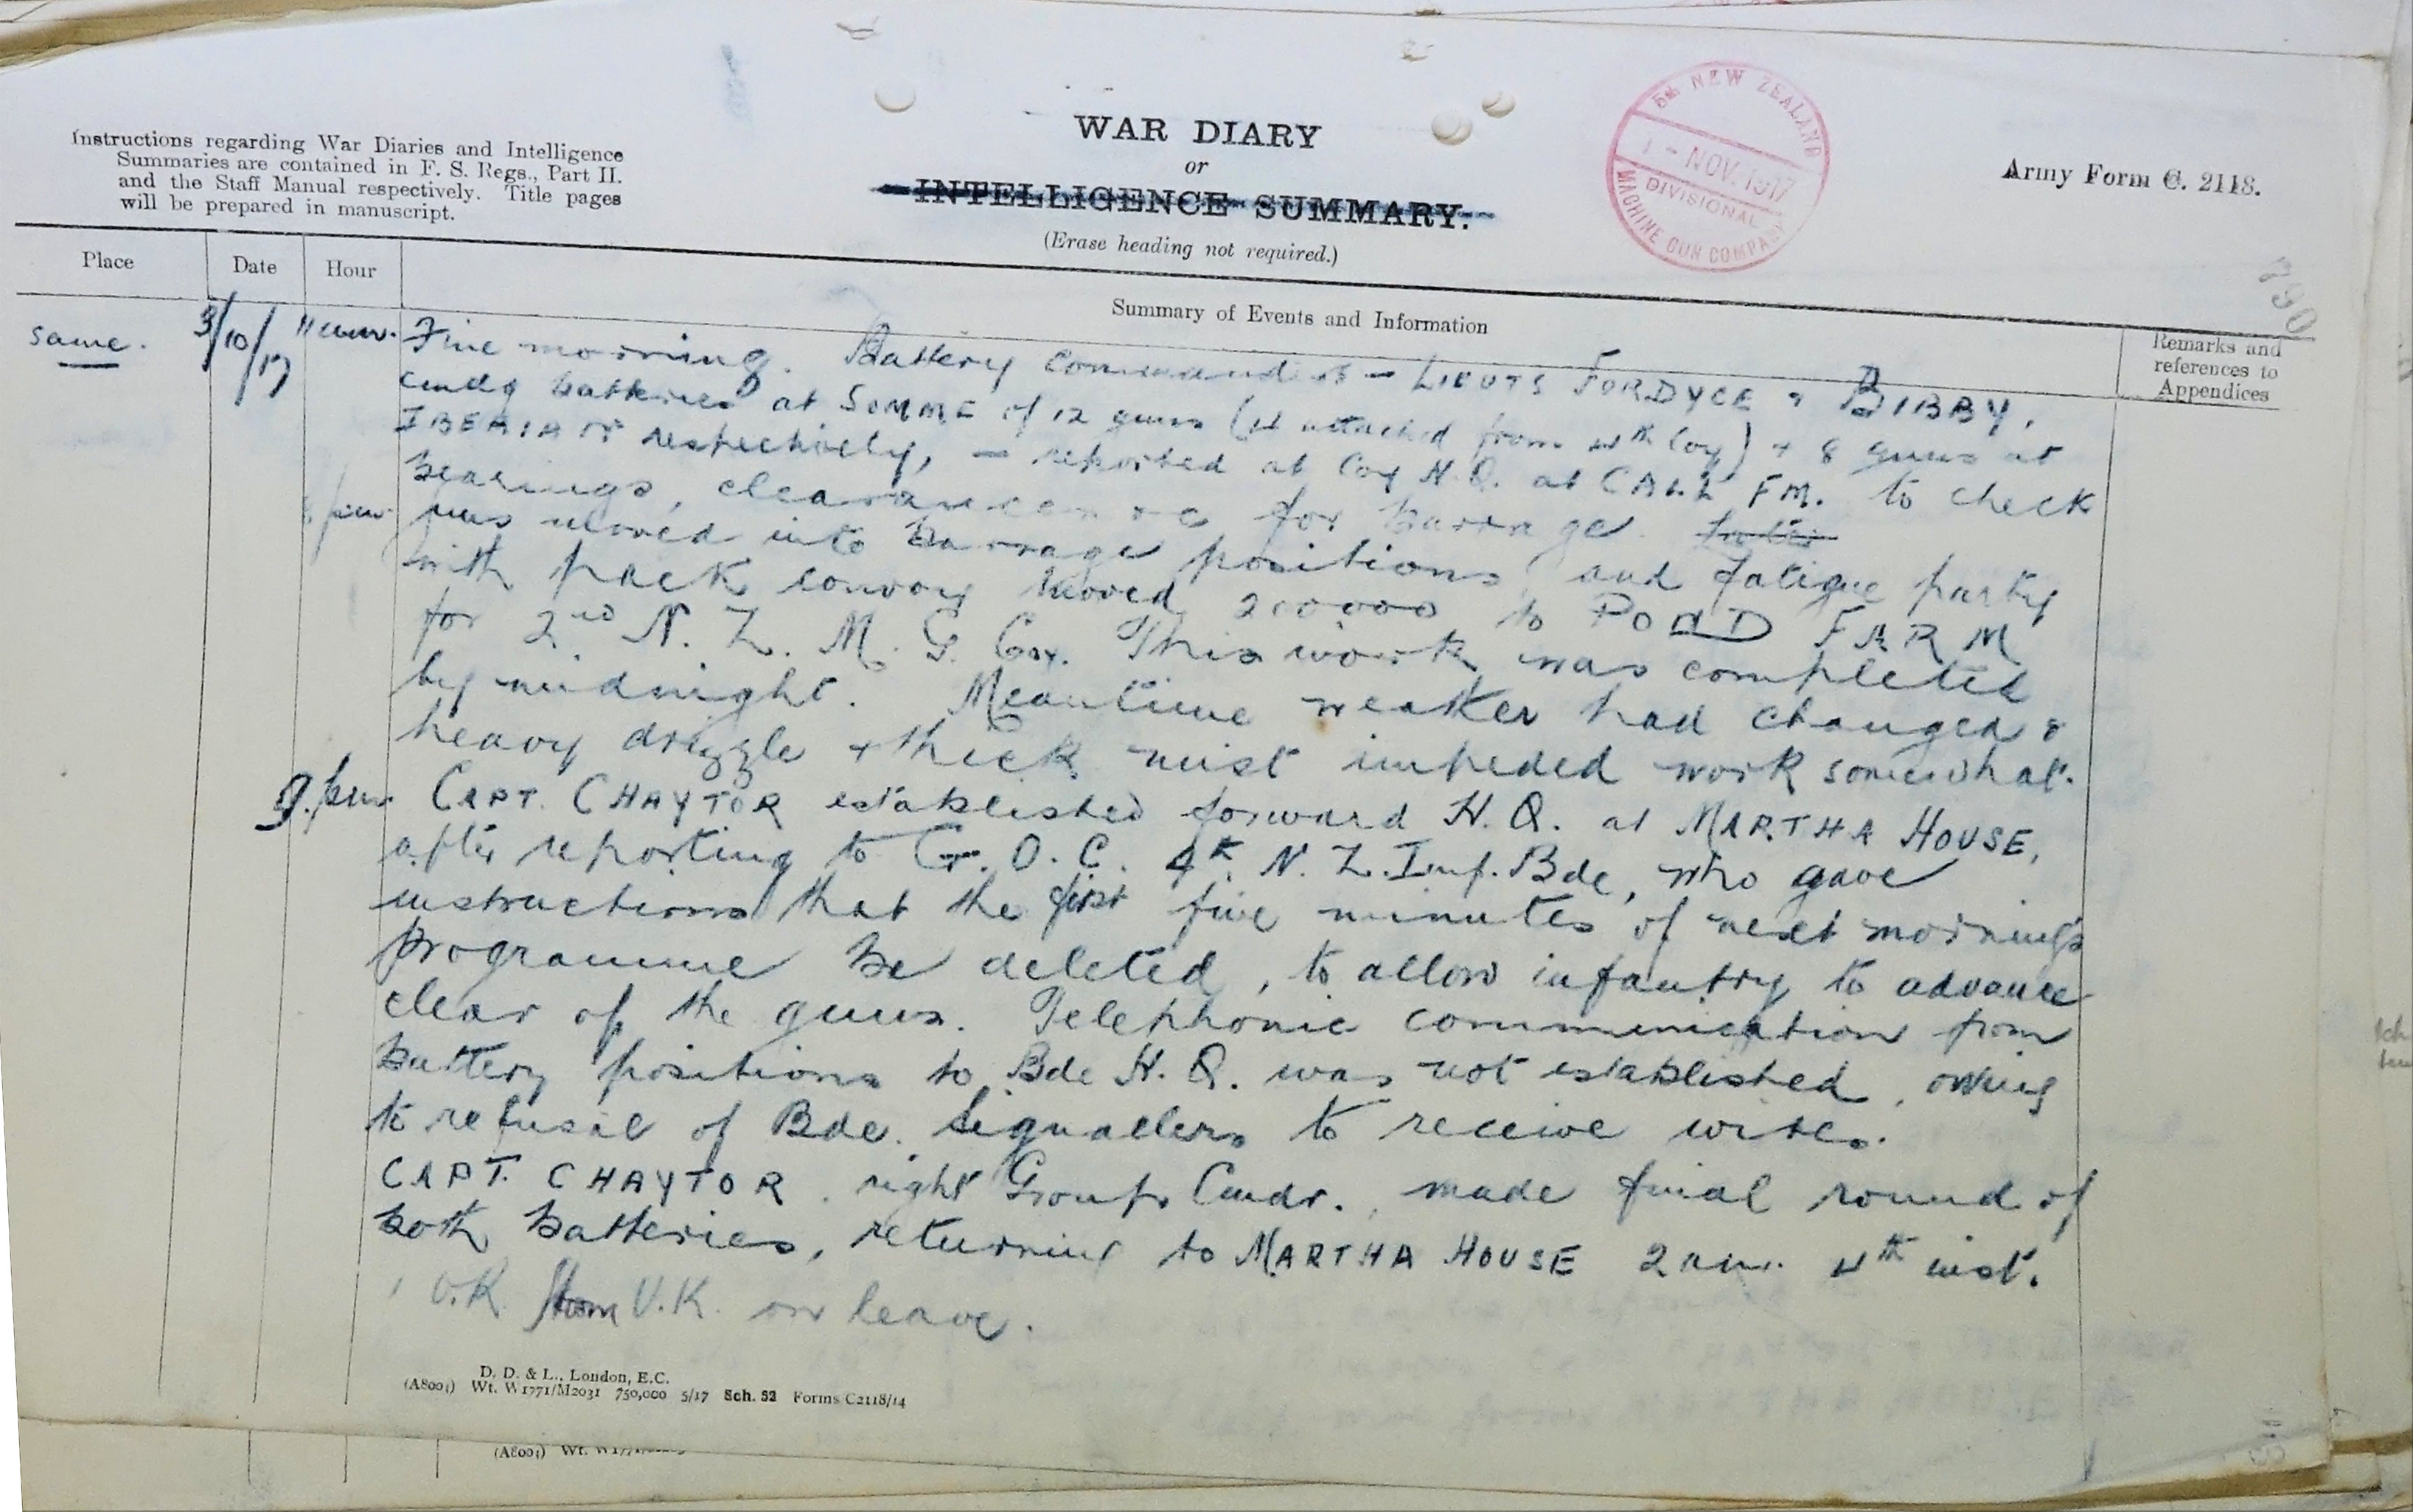 Instructions regarding War Diaries and Intelligence
Summaries are contained in F. S. Regs., Part II.
and the Staff Manual respectively. Title pages
will be prepared in manuscript.
WAR DIARY
or
INTELLIGENCE SUMMARY.
(Erase heading not required.)
5th NEW ZEALAND
1 - NOV. 1917
DIVISIONAL
MACHINE GUN COMPANY
Army Form C. 2118.
790
Place Date Hour Summary of Events and Information Remarks and
references to
Appendices
same. 3/10/17 11 am. Fine morning. Battery Commanders - LIEUTS FORDYCE & BIBBY,
cmdg batteries at SOMME of 12 guns (4 attached from 4th Coy) & 8 guns at
IBERIAN respectively, - reported at Coy H.Q. at CALL FM. to check
bearings, clearances &c for barrage.
8 pm. Guns moved into barrage positions, and fatigue party
with pack convoy moved 200000 to POND FARM
for 2nd N. Z. M. G. Coy. This work was completed
by midnight. Meantime weather had changed &
heavy drizzle & thick mist impeded work somewhat.
9. pm. CAPT. CHAYTOR established forward H. Q. at MARTHA HOUSE,
after reporting to G. O. C. 4th N. Z. Inf. Bde, who gave
instructions that the first five minutes of next morning's
programme be deleted, to allow infantry to advance
clear of the guns. Telephonic communication from
battery positions to Bde H. Q. was not established, owing
to refusal of Bde. Signallers to receive wires.
CAPT. CHAYTOR, right Group Cmdr., made final round of
both batteries, returning to MARTHA HOUSE 2 am. 4th inst.
1 O.R. from U.K. on leave.
D. D. & L., London, E.C.
(A8001) Wt. W1771/M2031 750,000 5/17 Sch. 52 Forms C2118/14
(A8001) Wt.